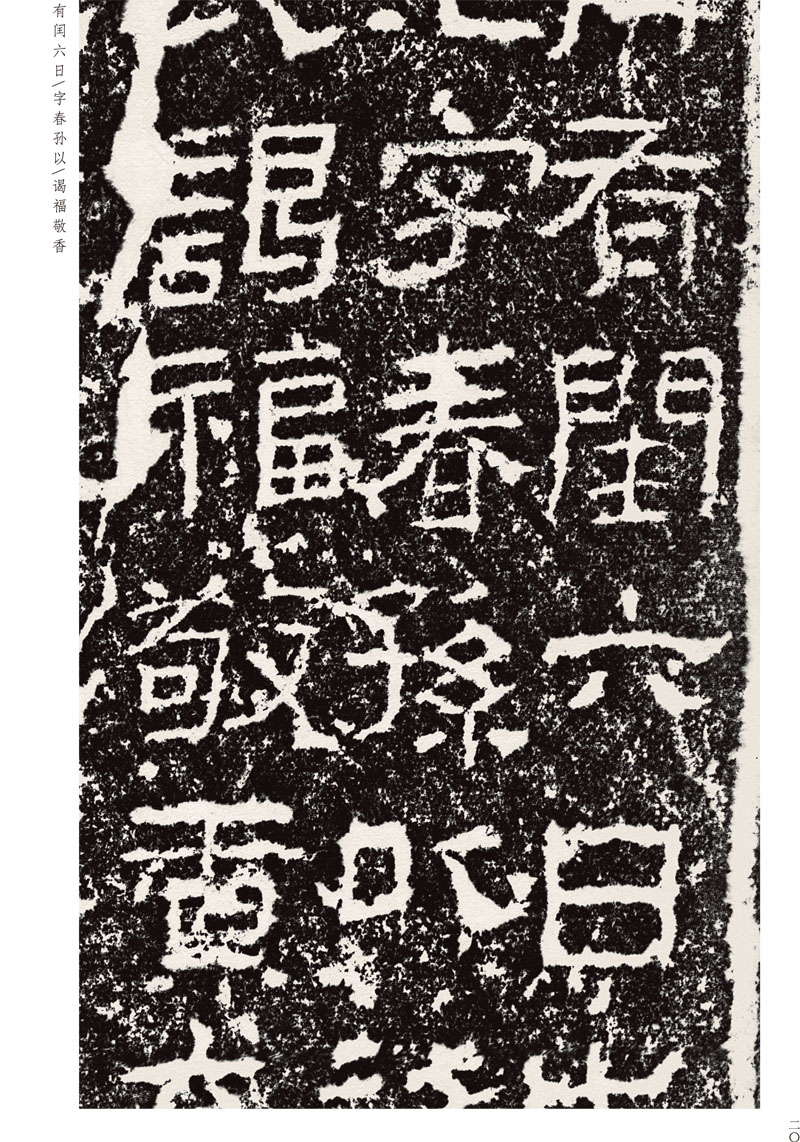 有閏六日
字春孫以
謁福敬香
有闰六日/字春孙以/谒福敬香
二〇